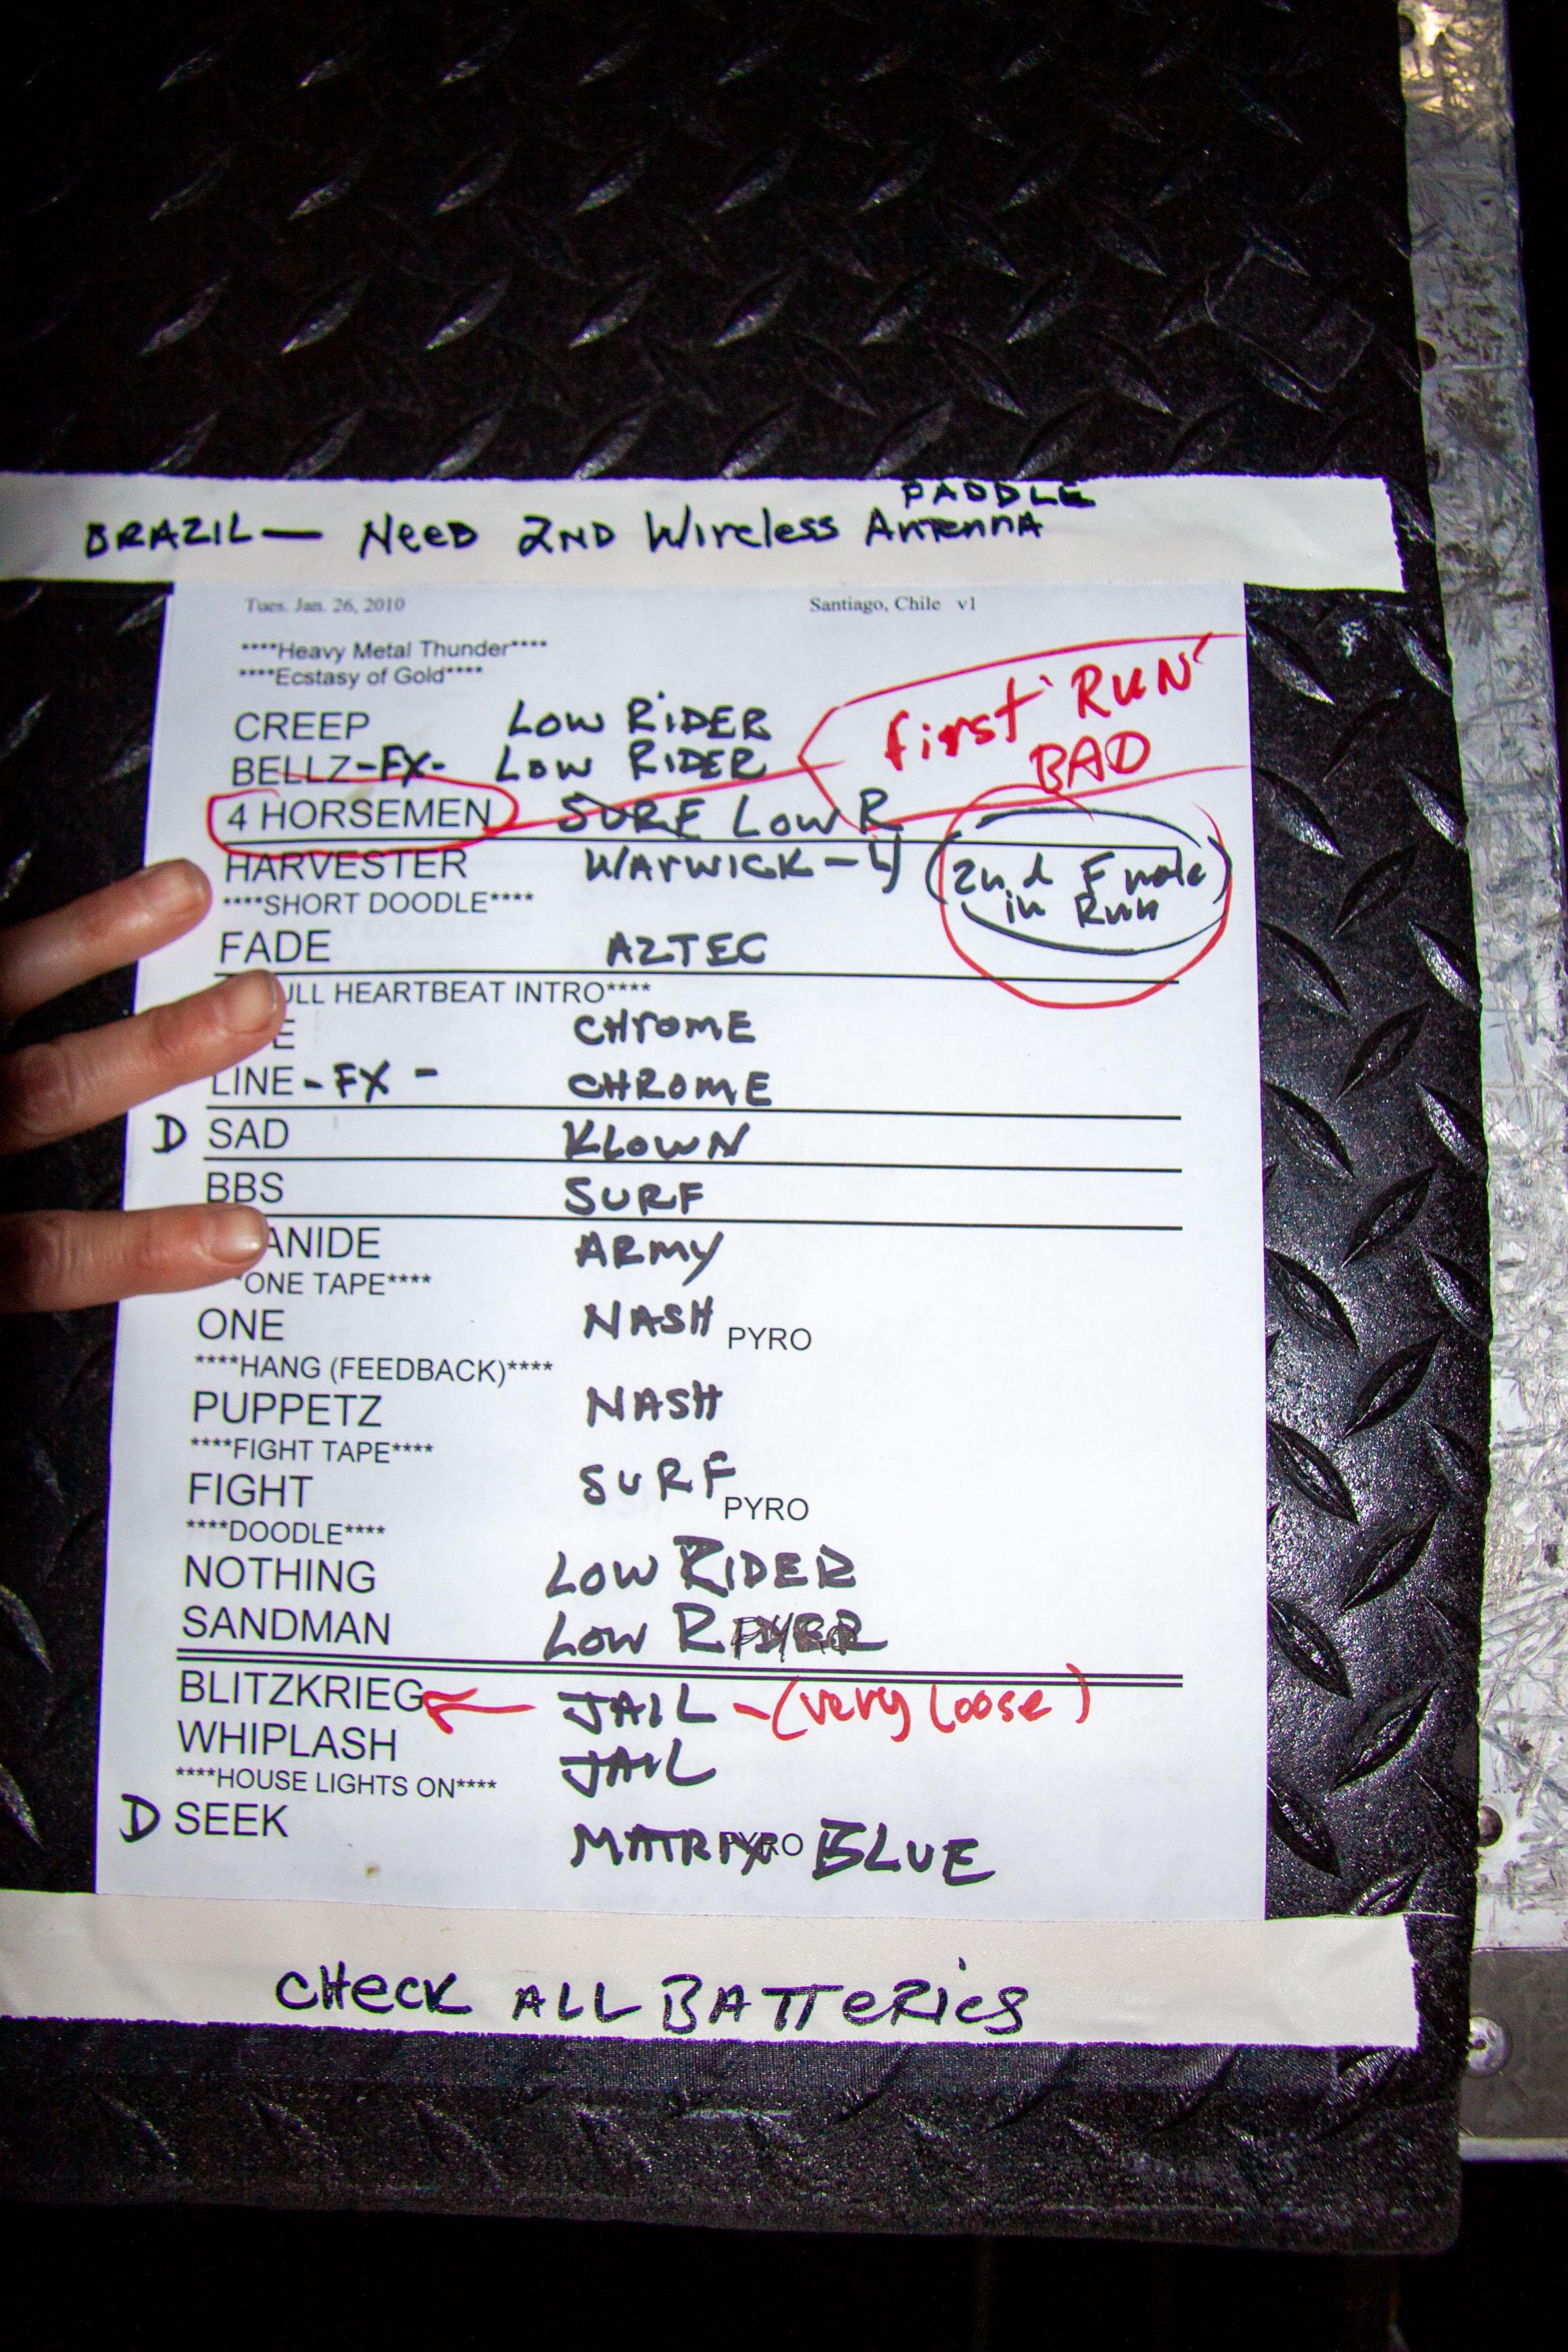 PADDLE
BRAZIL — NEED 2ND WIRELESS ANTENNA
Tues. Jan. 26, 2010 Santiago, Chile v1
****Heavy Metal Thunder****
****Ecstasy of Gold****
CREEP LOW RIDER first 'RUN'
BELLZ -FX- LOW RIDER BAD
4 HORSEMEN SURF LOW R
HARVESTER WARWICK - 4 (2nd F note
****SHORT DOODLE**** in Run)
FADE AZTEC
ULL HEARTBEAT INTRO****
E CHROME
LINE - FX - CHROME
D SAD KLOWN
BBS SURF
ANIDE ARMY
*ONE TAPE****
ONE NASH PYRO
****HANG (FEEDBACK)****
PUPPETZ NASH
****FIGHT TAPE****
FIGHT SURF PYRO
****DOODLE****
NOTHING LOW RIDER
SANDMAN LOW RIDER
BLITZKRIEG JAIL - (very loose)
WHIPLASH JAIL
****HOUSE LIGHTS ON****
D SEEK MATRIX PYRO BLUE
CHECK ALL BATTERIES